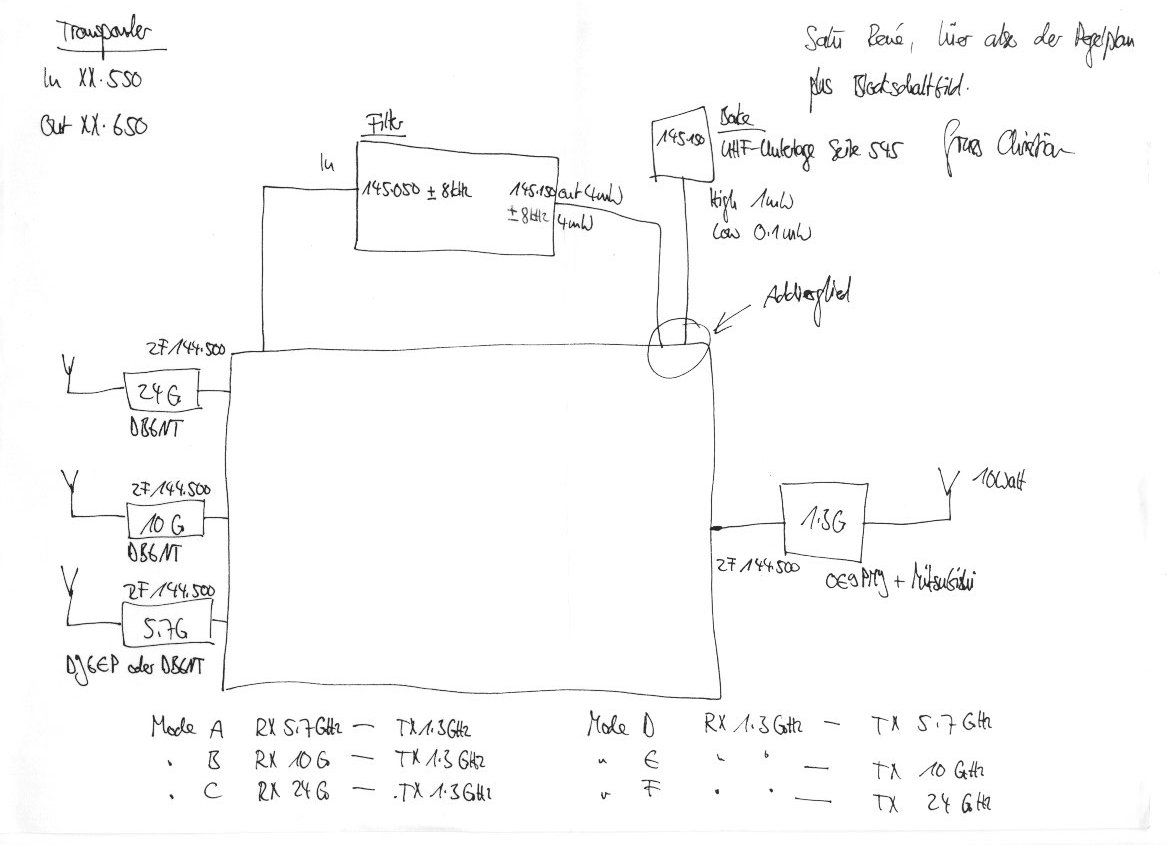 Transponder
In XX.550
Out XX.650
Salü René, hier also der Pegelplan
plus Blockschaltbild.
Gruss Christian
Filter
In
145.050 ± 8kHz
145.150 out 4mW
± 8kHz 4mW
145.150
Bake
UHF-Unterlage Seite 545
High 1mW
Low 0.1mW
Addierglied
ZF 144.500
24G
DB6NT
ZF 144.500
10 G
DB6NT
ZF 144.500
5.7G
DJ6EP oder DB6NT
10Watt
1.3G
ZF 144.500
OE9PMJ + Mitsubishi
Mode A RX 5.7GHz — TX 1.3GHz
" B RX 10G — TX 1.3GHz
" C RX 24G — TX 1.3GHz
Mode D RX 1.3GHz — TX 5.7GHz
" E " " — TX 10 GHz
" F " " — TX 24 GHz